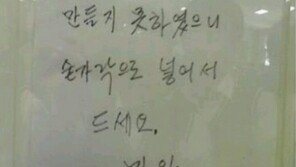 만들지 못하였으니
손가락으로 넣어서
드세요.